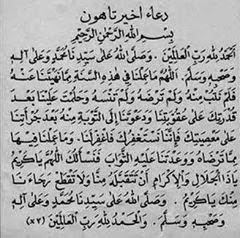 دعاء اخير تاهون
بسم الله الرحمن الرحيم
الحمد لله رب العالمين . وصلى الله على سيدنا محمد وعلى آله
وصحبه وسلم . اللهم ما عملنا في هذه السنة مما نهيتنا عنه
فلم نتب منه ولم ترضه ولم تنسه وحلمت علينا بعد
قدرتك على عقوبتنا ودعوتنا إلى التوبة منه بعد جرأتنا
على معصيتك فإنا نستغفرك فاغفر لنا . وما عملنا فيها
مما ترضاه ووعدتنا عليه الثواب فنسألك اللهم يا كريم
يا ذا الجلال والإكرام أن تتقبله منا ولا تقطع رجاءنا
منك يا كريم . وصلى الله على سيدنا محمد وعلى آله
وصحبه وسلم . والحمد لله رب العالمين (×٣)